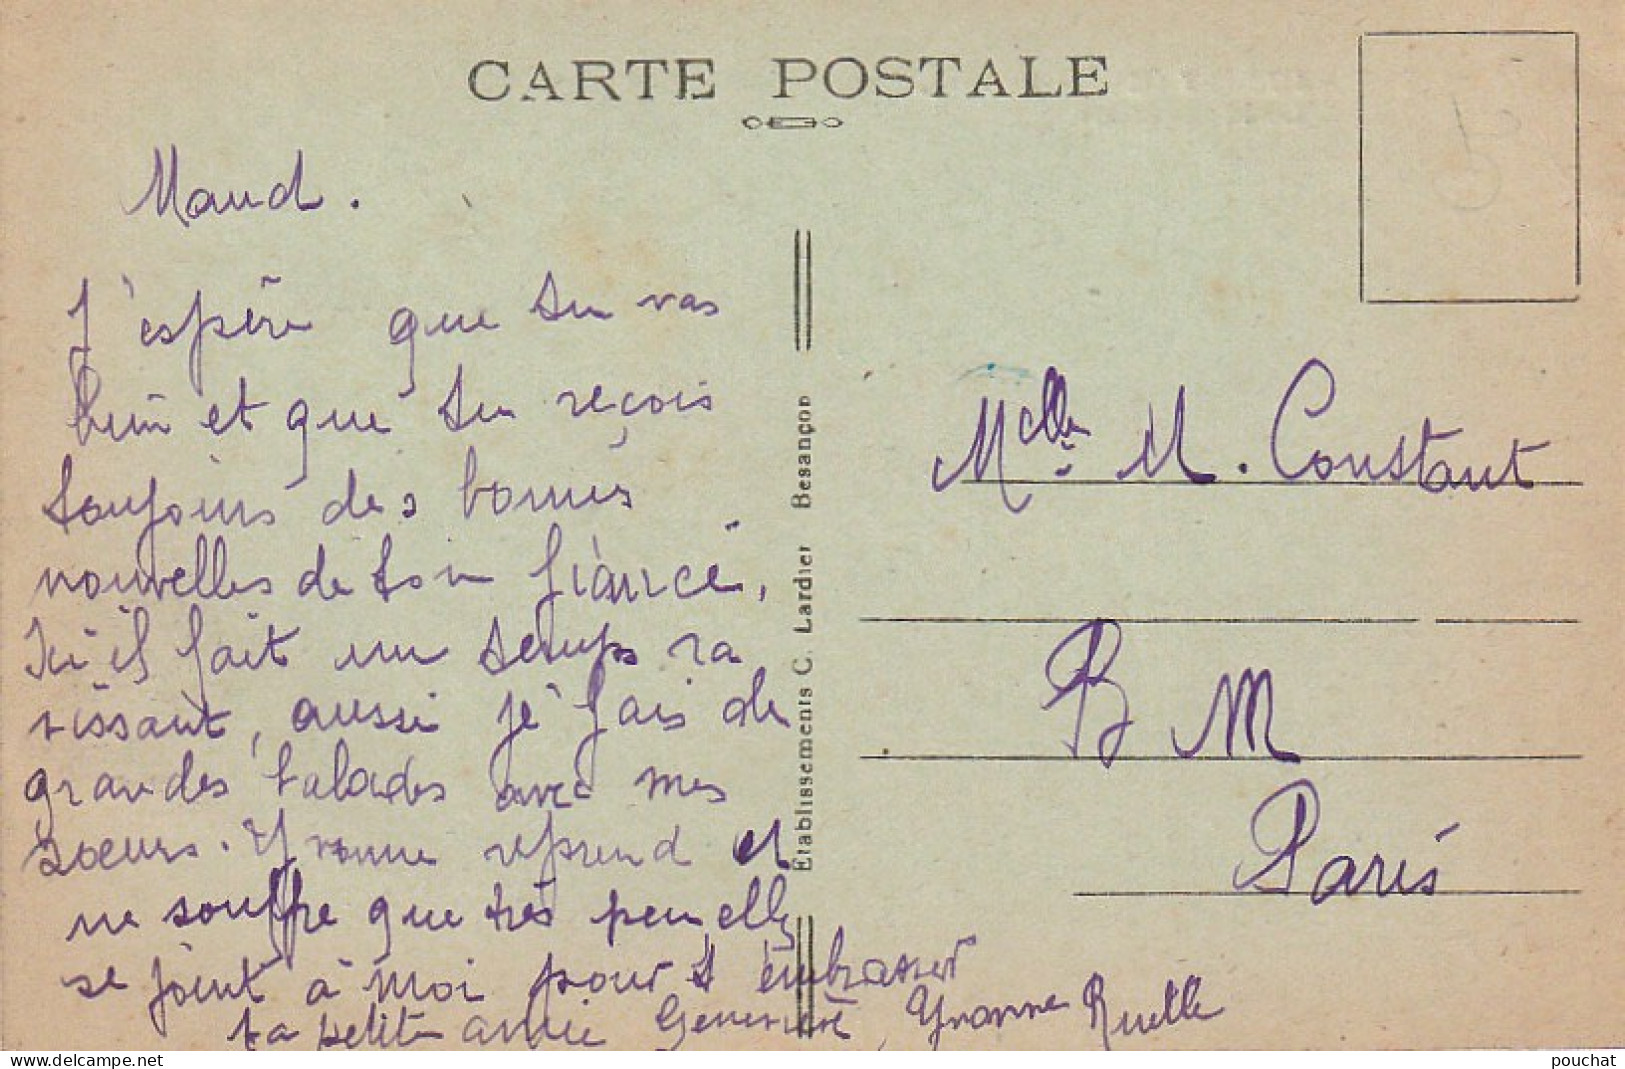 CARTE POSTALE
Maud.
J'espère que tu vas
bien et que tu reçois
toujours des bonnes
nouvelles de ton fiancé,
Ici il fait un temps ra
vissant, aussi je fais de
grandes balades avec mes
soeurs. Yvonne reprend et
ne souffre que très peu, elle
se joint à moi pour t'embrasser
ta petite amie Geneviève, Yvonne Ruelle
Établissements C. Lardier Besançon
Melle M. Constant
B M
Paris
pouchat